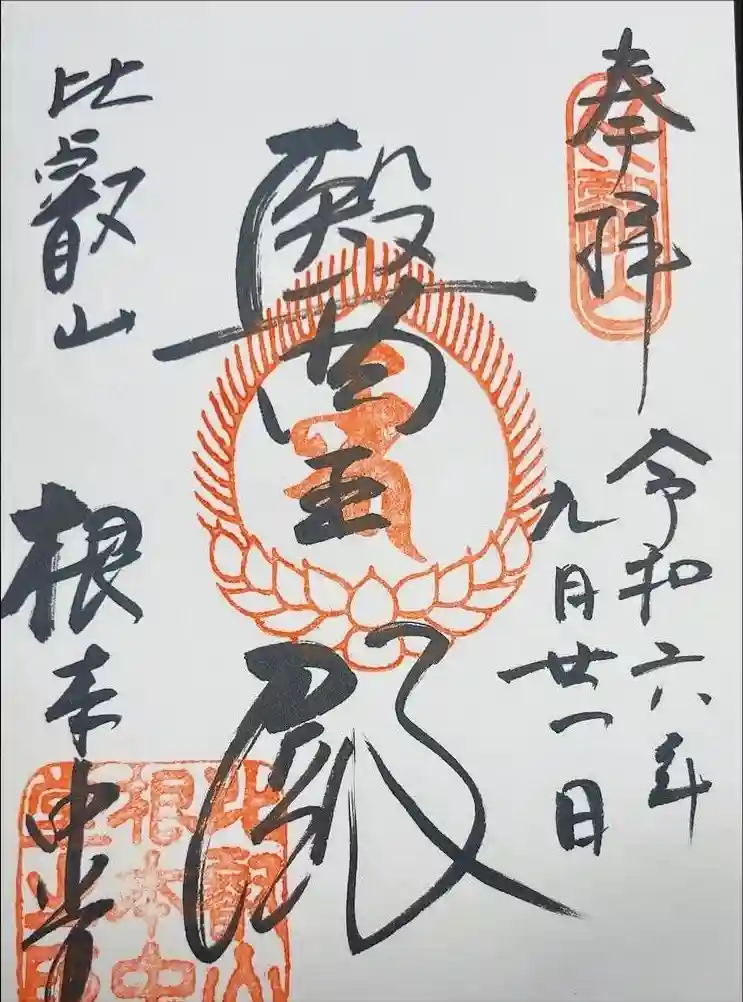 奉拝
令和六年
九月廿一日
醫王殿
比叡山
根本中堂
比叡山
根本中
堂之印